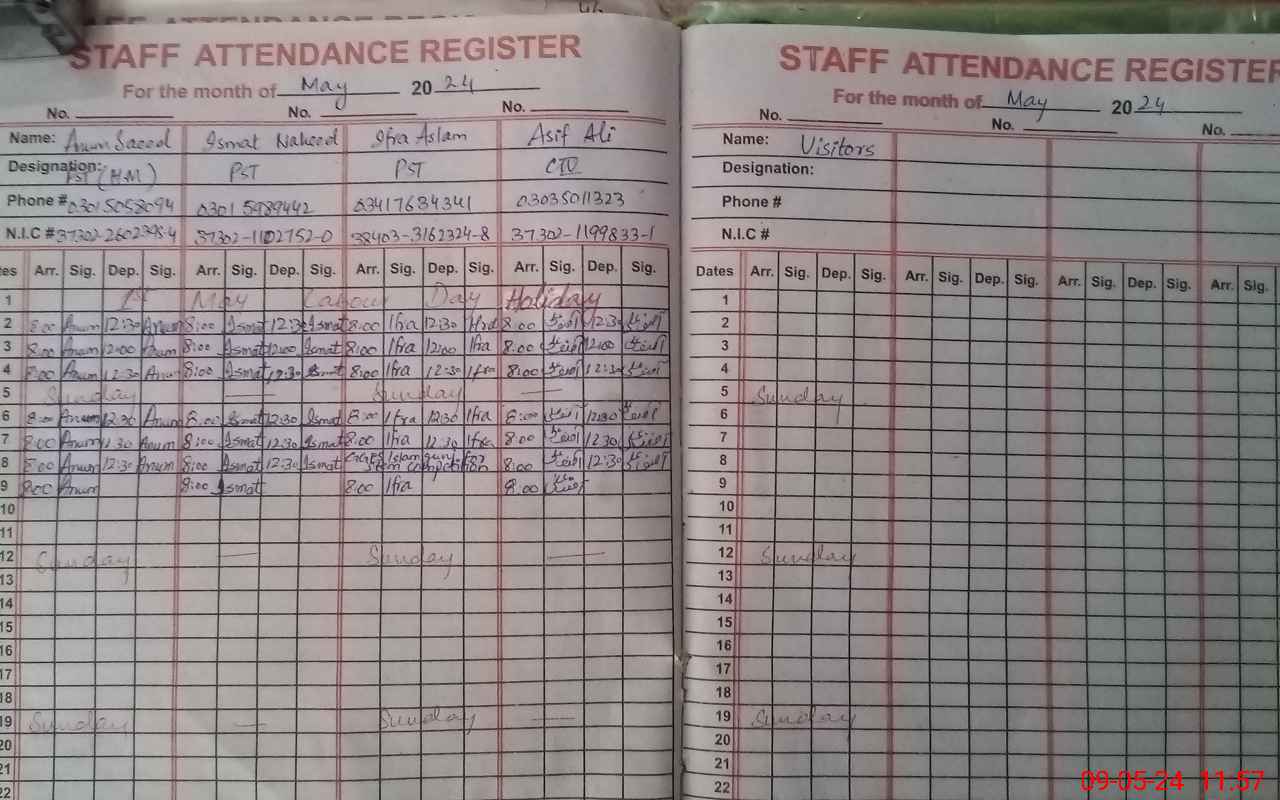 STAFF ATTENDANCE REGISTER
For the month of May 2024
No. No. No.
Name: Anum Saeed Ismat Naheed Ifra Aslam Asif Ali
Designation: PST (H.M) PST PST
Phone # 03015058094 0301 5989442 03417634341 03035011323
N.I.C # 37302-1102752-0 38403-3162324-8 37302-1199833-1
Arr. Sig. Dep. Sig. Arr. Sig. Dep. Sig. Arr. Sig. Dep. Sig. Arr. Sig. Dep. Sig.
1 1st May Labour Day Holiday
2 8:00 Anum 12:30 Anum 8:00 Ismat 12:30 Ismat 8:00 Ifra 12:30 Ifra 8:00 12:30
3 8:00 Anum 12:00 Anum 8:00 Ismat 12:00 Ismat 8:00 Ifra 12:00 Ifra 8:00 12:00
4 8:00 Anum 12:30 Anum 8:00 Ismat 12:30 Ismat 8:00 Ifra 12:30 Ifra 8:00 12:30
5 Sunday — Sunday —
6 8:00 Anum 12:30 Anum 8:00 Ismat 12:30 Ismat 8:00 Ifra 12:30 Ifra 8:00 12:30
7 8:00 Anum 12:30 Anum 8:00 Ismat 12:30 Ismat 8:00 Ifra 12:30 Ifra 8:00 12:30
8 8:00 Anum 12:30 Anum 8:00 Ismat 12:30 Ismat for 8:00 12:30
9 8:00 Anum 8:00 Ismat 8:00 Ifra 8:00
10
11
12 Sunday — Sunday —
13
14
15
16
17
18
19 Sunday — Sunday —
20
21
22
STAFF ATTENDANCE REGISTER
For the month of May 2024
No. No. No.
Name: Visitors
Designation:
Phone #
N.I.C #
Dates Arr. Sig. Dep. Sig. Arr. Sig. Dep. Sig. Arr. Sig. Dep. Sig. Arr. Sig.
1
2
3
4
5 Sunday
6
7
8
9
10
11
12 Sunday
13
14
15
16
17
18
19 Sunday
20
21
22
09-05-24 11:57